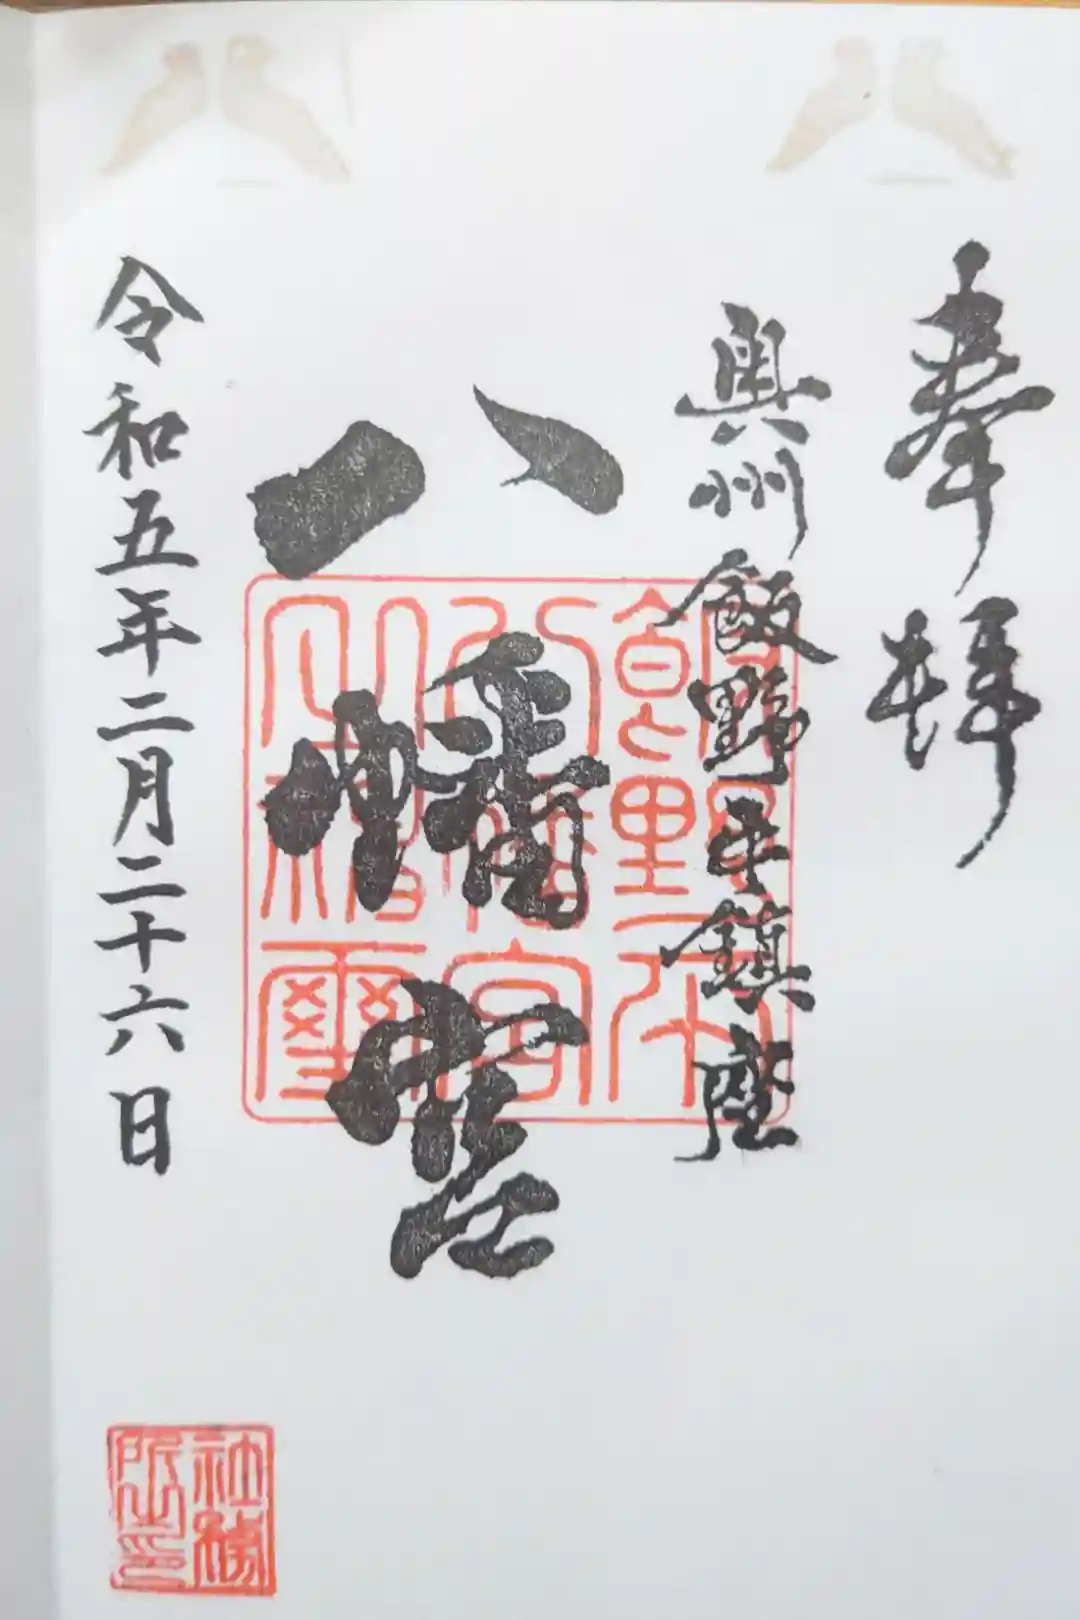 奉拝
奥州飯野平鎮座
八幡宮
令和五年二月二十六日
飯野平
八幡宮
社務
所印